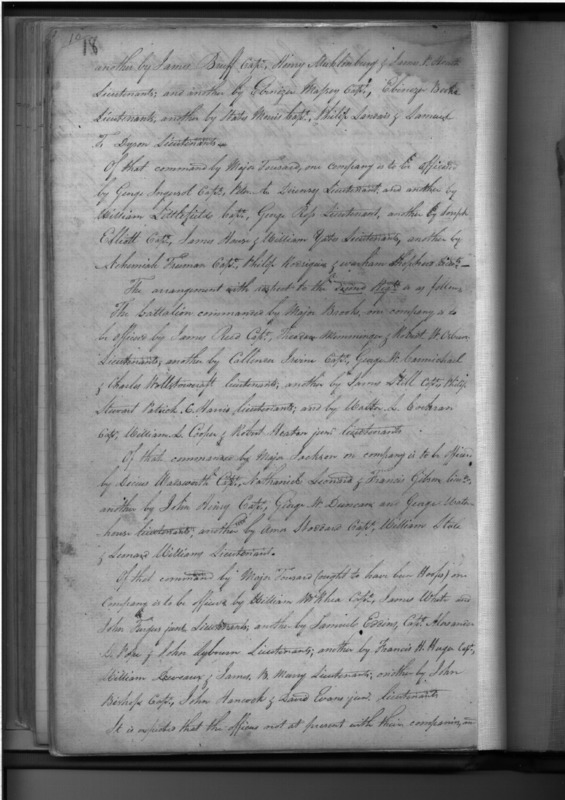 18
another by James Bruff Capt, Henry Muhlenburg & James P. Heath
Lieutenants; and another by Ebenezer Massey Capt, Ebenezer Beebe
Lieutenants, another by Staats Morris Capt, Philip Landais & Samuel
T. Dyson Lieutenants
Of that command by Major Tousard, one company is to be officered
by George Ingersol Capt, Peter Lieutenant, and another by
William Littlefield Capt, George Ross Lieutenant, another by Joseph
Elliott Capt, James House & William Yates Lieutenants, another by
Nehemiah Freeman Capt, Philip Rodrigue & Shepherd Lieuts
The arrangement with respect to the second Regt is as follows
The battalion commanded by Major Brooks, one company is to
be officered by James Read Capt, Memminger & Robert W. Osborn
Lieutenants, another by Callender Irvine Capt, George W. Carmichael
& Charles Wollstonecraft lieutenants, another by James Still Capt, Philip
Stewart Patrick C. Harris, lieutenants, and by Walter L. Cochran
Capt, William L. Cooper & Robert Heaton junr lieutenants
Of that commanded by Major Jackson one company is to be officered
by Decius Wadsworth Capt, Nathaniel Leonard & Francis Gibson Lieuts,
another by John Henry Capt, George W. Duncan and George Water-
house lieutenants, another by Amos Stoddard Capt, William Steele
& Leonard Williams Lieutenants.
Of that command by Major Tousard (ought to have been Hoops) one
Company is to be officered by William McRhea Capt, James White and
John Fergus junr Lieutenants; another by Samuel Eddins, Capt. Alexander
D. Pope & John Leybourn Lieutenants; another by Francis H. Huger Capt,
William Deveaux & James B. Many Lieutenants; another by John
Bishop Capt, John Hancock & David Evans junr Lieutenants
It is expected that the officers not at present with their companies, and